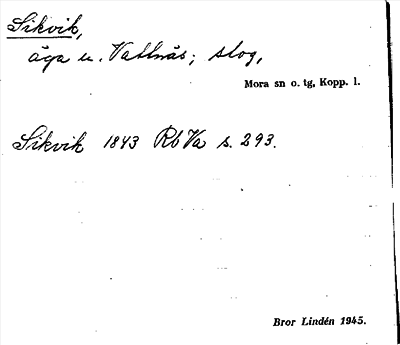 Sikvik,
äga u. Vattnäs; slog,
Mora sn o. tg, Kopp. l.
Sikvik 1843 Rb Va s. 293.
Bror Lindén 1945.